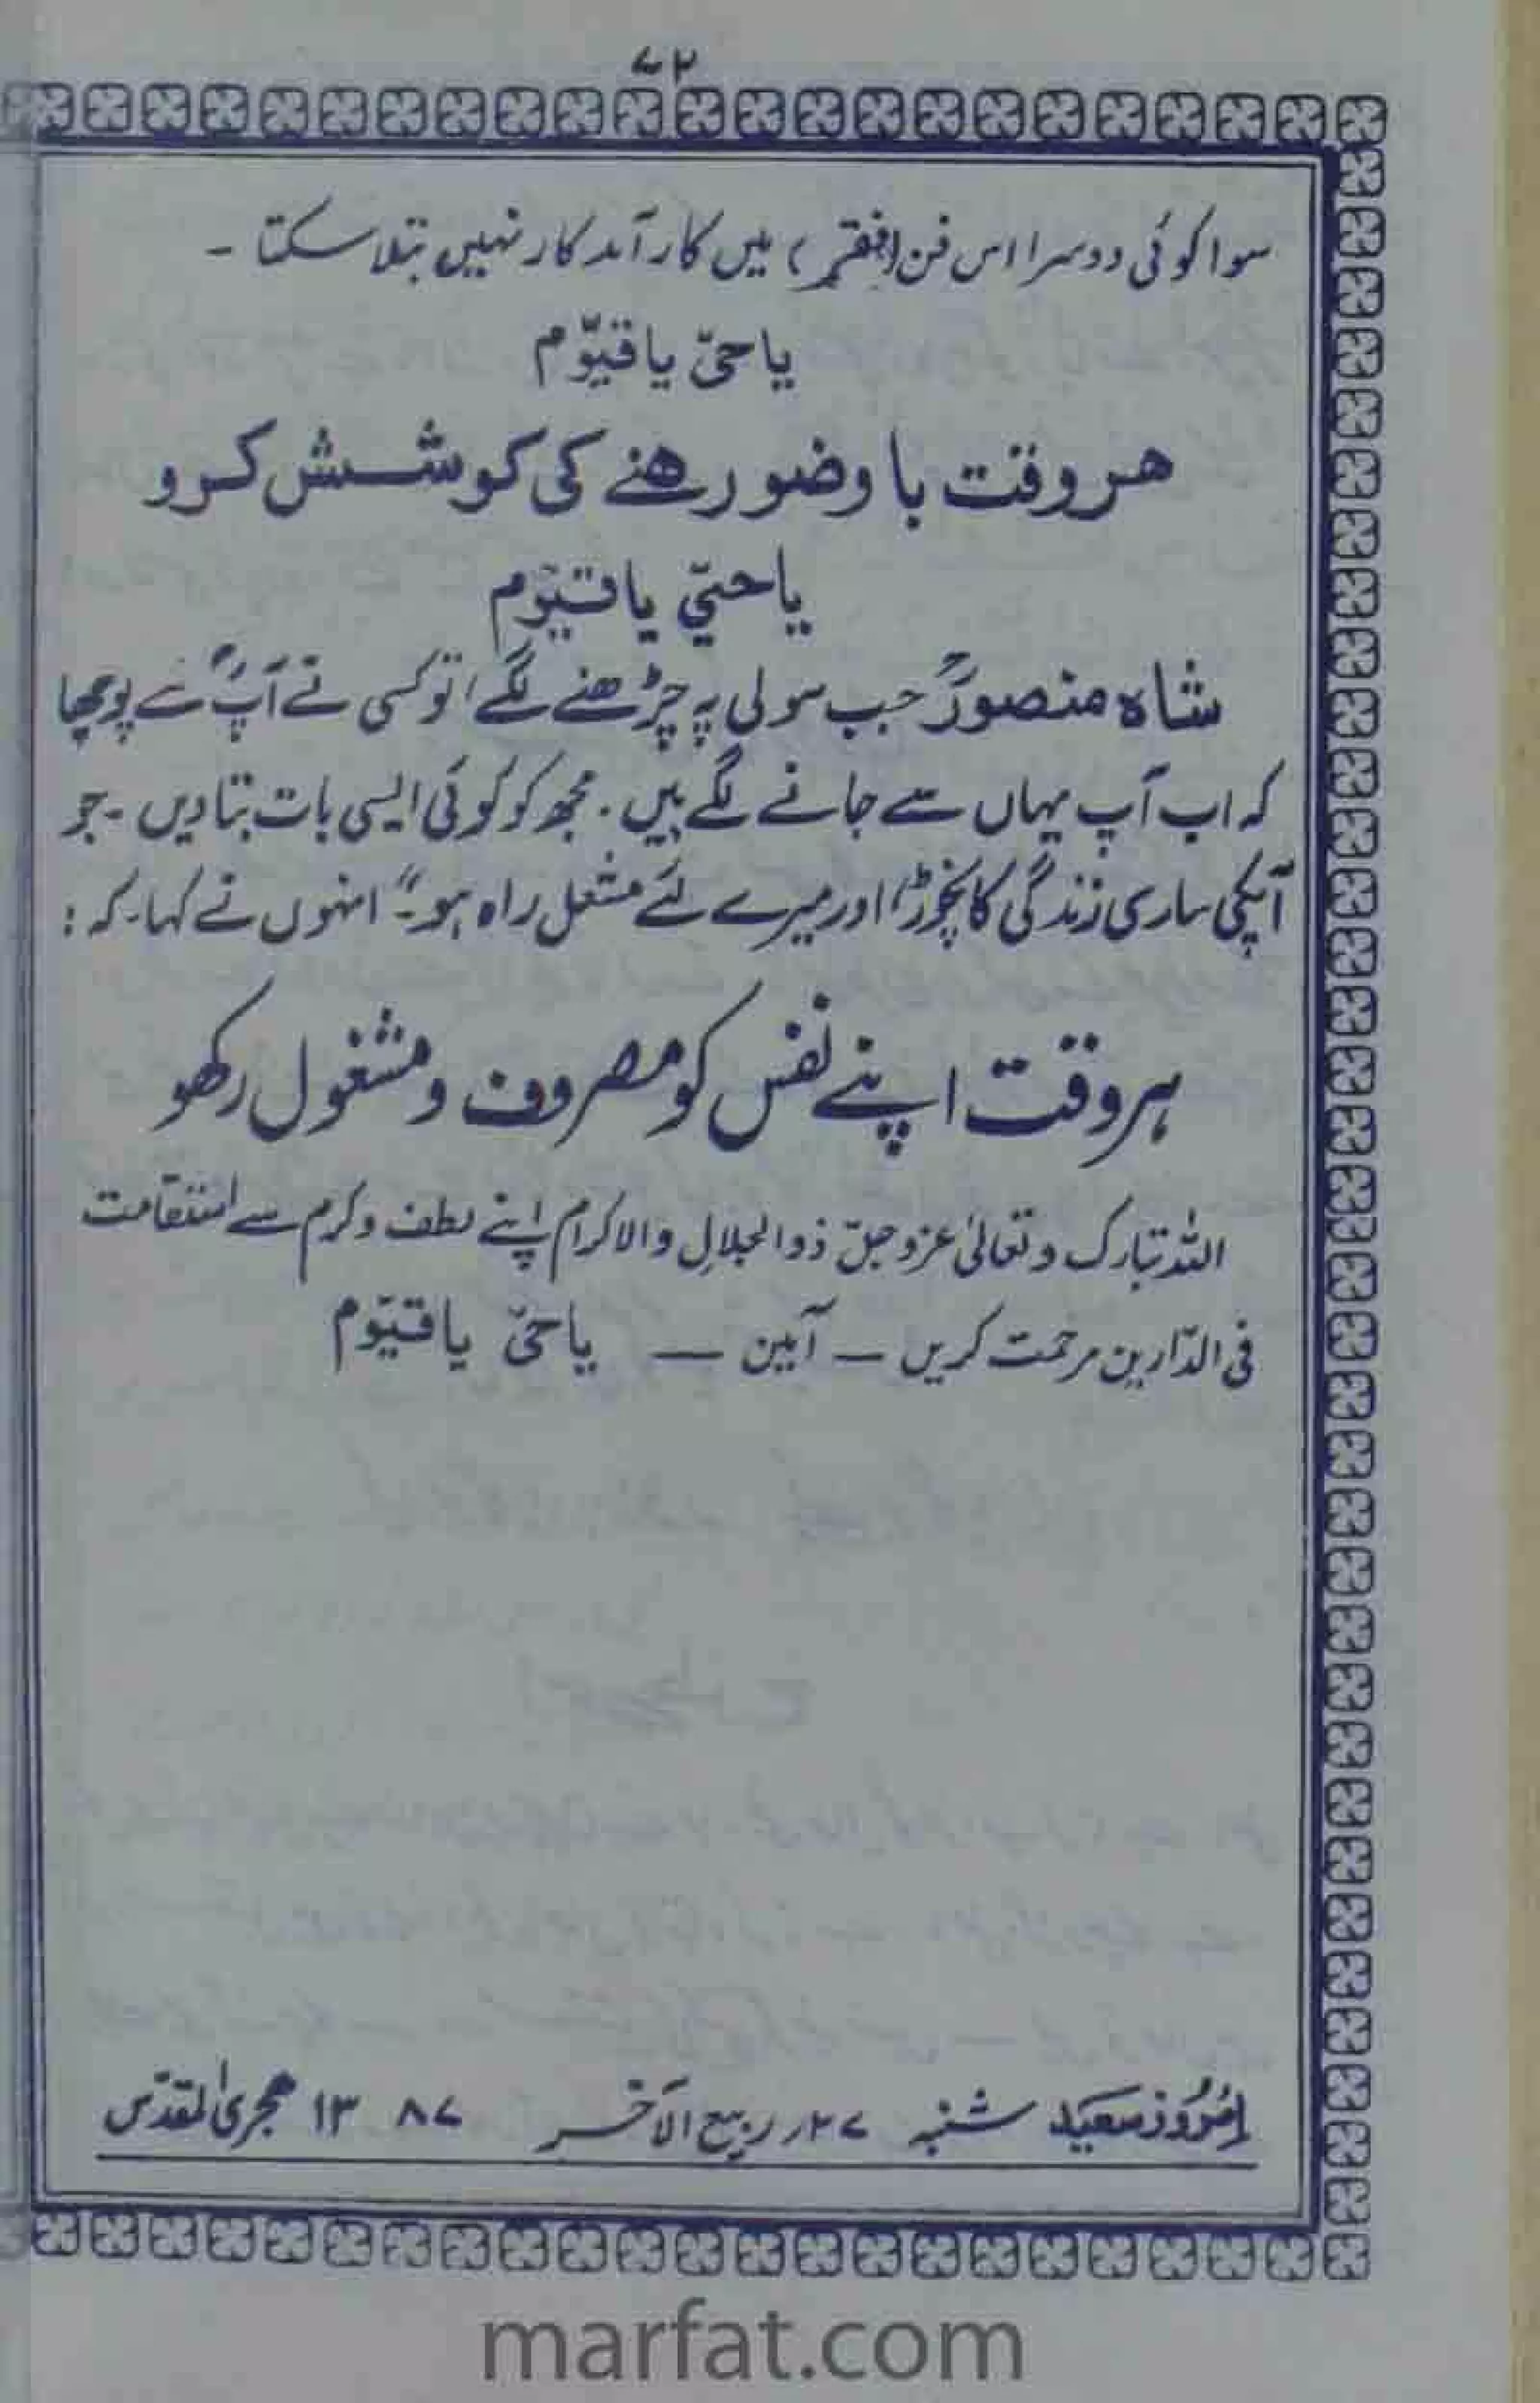 ۷۲
سوا کوئی دوسرا اس فن (فقر) میں کارآمد کار نہیں بتلا سکتا ۔
یا حیّ یا قیّوم
ھر وقت با وضو رھنے کی کوشش کرو
یا حیّ یا قیّوم
شاہ منصورؒ جب سولی پہ چڑھنے لگے، تو کسی نے آپؒ سے پوچھا
کہ اب آپ یہاں سے جانے لگے ہیں ۔ مجھ کو کوئی ایسی بات بتا دیں ۔ جو
آپکی ساری زندگی کا نچوڑ، اور میرے لئے مشعل راہ ہو۔" انہوں نے کہا۔ کہ :
ہر وقت اپنے نفس کو مصروف و مشغول رکھو
اللہ تبارک و تعالیٰ عزوجلّ ذوالجلالِ والاکرام اپنے لطف و کرم سے استقامت
فی الدّارین مرحمت کریں — آمین — یا حیّ یا قیّوم
اِمْرُوز سَعِید شنبہ ۲۷ ر ربیع الآخر ۱۳۸۷ ھجری المقدّس
marfat.com